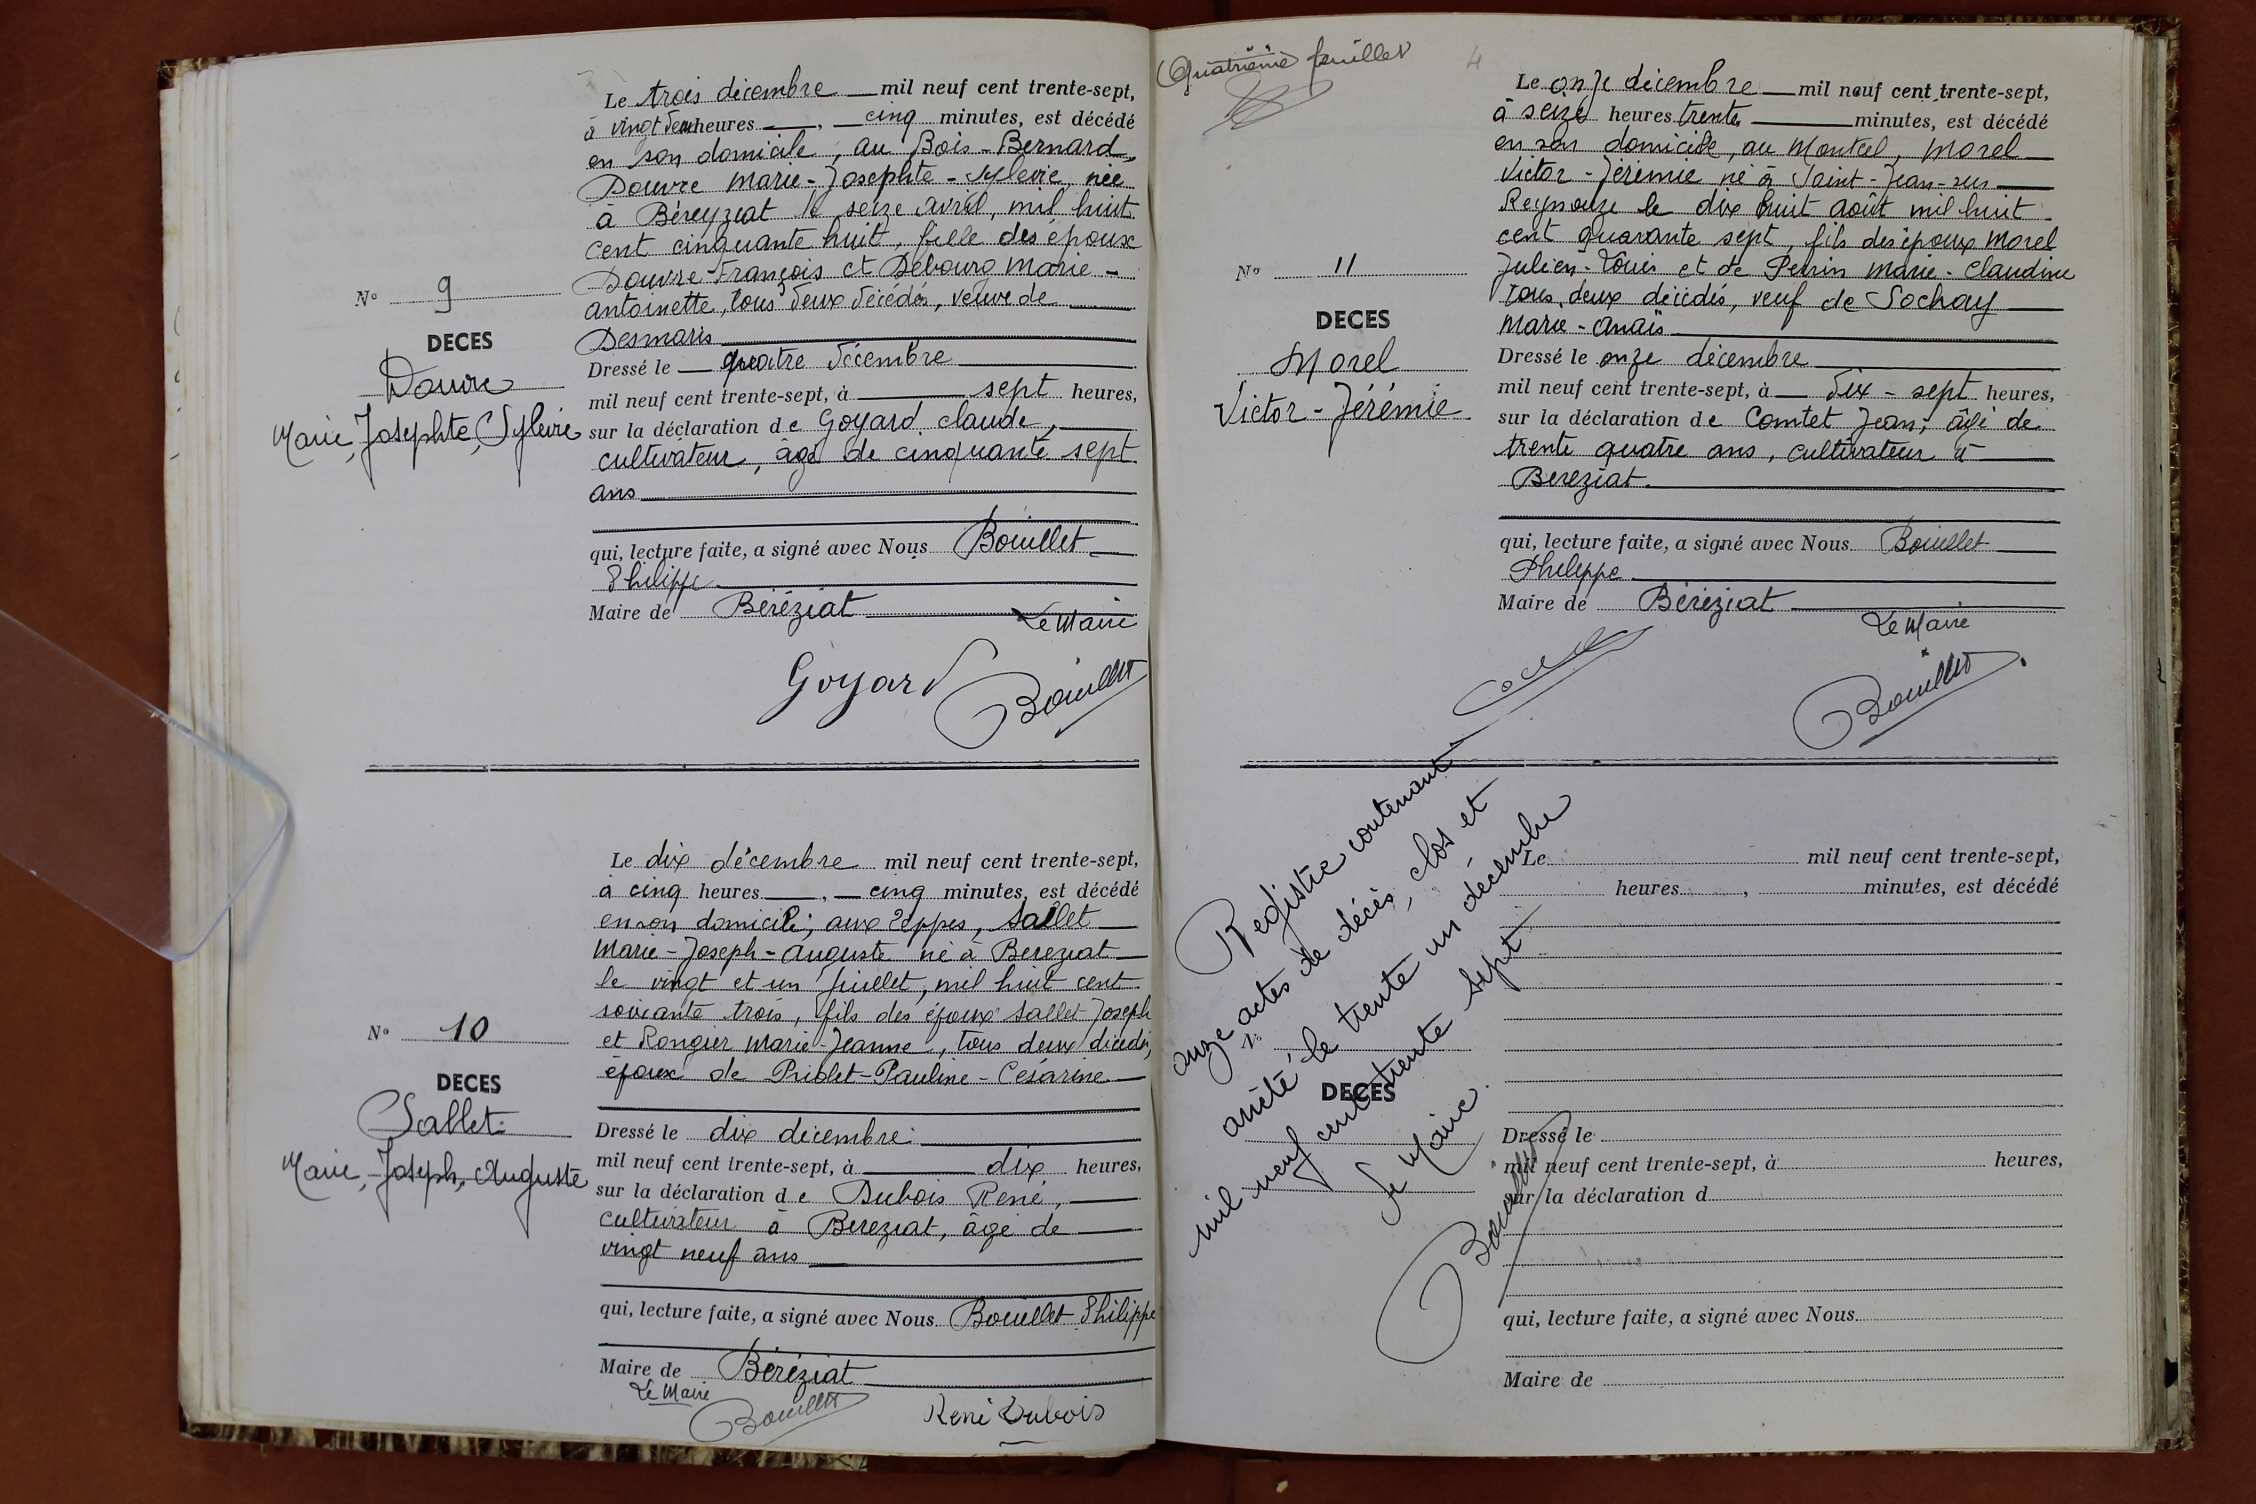 Le trois décembre mil neuf cent trente-sept,
à vingt deux heures , cinq minutes, est décédé
en son domicile, au Bois-Bernard,
Douvre Marie-Josephte-Sylvie, née
à Béreyziat le seize avril, mil huit
cent cinquante huit, fille des époux
Douvre-François et Debourg Marie-
antoinette, tous deux décédés, veuve de
Desmaris
N° 9
DECES
Douvre
Marie, Josephte, Sylvie
Dressé le quatre décembre
mil neuf cent trente-sept, à sept heures,
sur la déclaration de Goyard claude,
cultivateur, âgé de cinquante sept
ans
qui, lecture faite, a signé avec Nous Bouillet
Philippe
Maire de Béréziat
Le Maire
Goyard Bouillet
Le dix décembre mil neuf cent trente-sept,
à cinq heures , cinq minutes, est décédé
en son domicile, aux Teppes, Sallet
Marie-Joseph-Auguste né à Bereziat
le vingt et un juillet, mil huit cent
soixante trois, fils des époux Sallet Joseph
et Rongier Marie-Jeanne, tous deux décédés,
époux de Priolet-Pauline-Césarine
N° 10
DECES
Sallet
Marie, Joseph, Auguste
Dressé le dix décembre
mil neuf cent trente-sept, à dix heures,
sur la déclaration de Dubois René,
cultivateur à Bereziat, âgé de
vingt neuf ans
qui, lecture faite, a signé avec Nous Bouillet Philippe
Maire de Béréziat
Le Maire
Bouillet René Dubois
Quatrième feuillet 4
Le onze décembre mil neuf cent trente-sept,
à seize heures trente minutes, est décédé
en son domicile, au Montcel, Morel
Victor-Jérémie né à Saint-Jean-sur
Reyssouze le dix huit août mil huit
cent quarante sept, fils des époux Morel
Julien-Louis et de Perrin Marie-Claudine
tous deux décédés, veuf de Sochay
Marie-Anaïs
N° 11
DECES
Morel
Victor-Jérémie
Dressé le onze décembre
mil neuf cent trente-sept, à dix-sept heures,
sur la déclaration de Comtet Jean, âgé de
trente quatre ans, cultivateur à
Bereziat.
qui, lecture faite, a signé avec Nous Bouillet
Philippe
Maire de Béréziat
Le Maire
Bouillet
Registre contenant
onze actes de décès, clos et
arrêté le trente un décembre
mil neuf cent trente sept
Le Maire.
Bouillet
Le mil neuf cent trente-sept,
heures , minutes, est décédé
N°
DECES
Dressé le
mil neuf cent trente-sept, à heures,
sur la déclaration d
qui, lecture faite, a signé avec Nous
Maire de